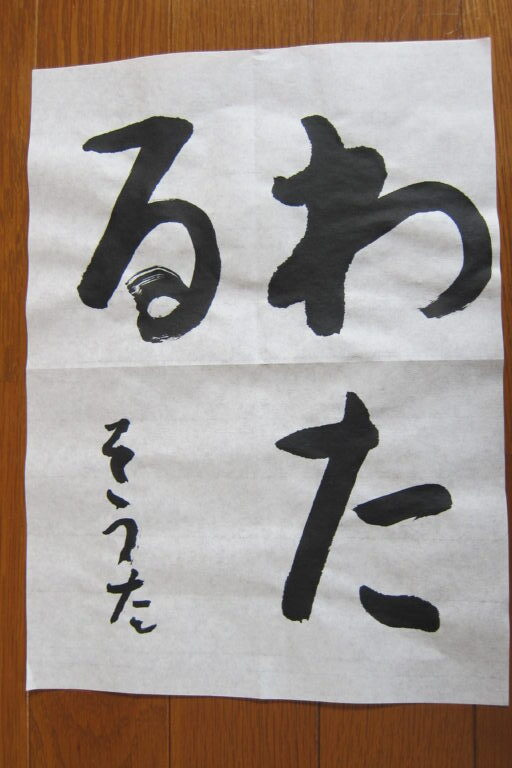 わた
る
そうた